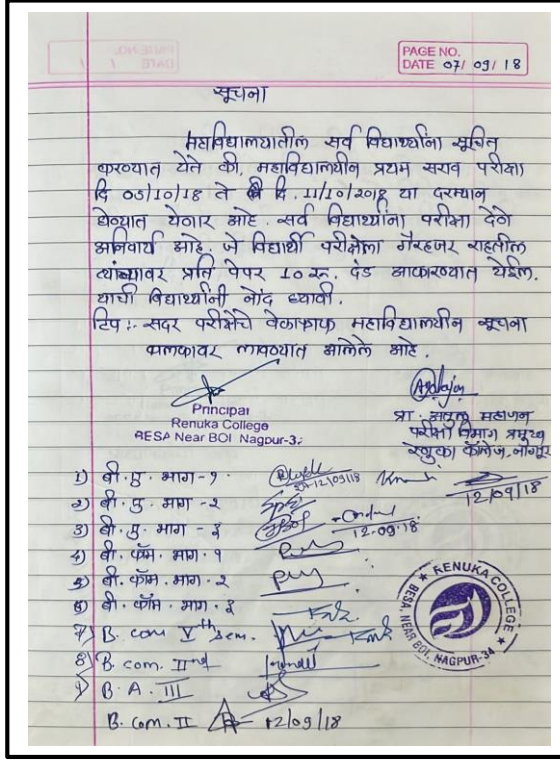 PAGE NO.
DATE 07/09/18
सूचना
महाविद्यालयातील सर्व विद्यार्थ्यांना सूचित
करण्यात येते की, महाविद्यालयीन प्रथम सराव परीक्षा
दि 05/10/18 ते दि. 11/10/2018 या दरम्यान
घेण्यात येणार आहे. सर्व विद्यार्थ्यांना परीक्षा देणे
अनिवार्य आहे. जे विद्यार्थी परीक्षेला गैरहजर राहतील
त्यांच्यावर प्रति पेपर 10 रु. दंड आकारण्यात येईल.
याची विद्यार्थ्यांनी नोंद घ्यावी.
टिप :- सदर परीक्षेचे वेळापत्रक महाविद्यालयीन सूचना
फलकावर लावण्यात आलेले आहे.
Principal
Renuka College
BESA Near BOI Nagpur-3
प्रा. अतुल महाजन
परीक्षा विभाग प्रमुख
रेणुका कॉलेज, नागपूर
1) बी. ए. भाग - १
12/09/18
12/09/18
2) बी. ए. भाग - २
3) बी. ए. भाग - ३
12.09.18
4) बी. कॉम. भाग. १
5) बी. कॉम. भाग. २
6) बी. कॉम. भाग. ३
7) B. com V th Sem.
8) B. com. II nd
9) B. A. III
B. Com. II 12/09/18
RENUKA COLLEGE
BESA, NEAR BOI, NAGPUR-34